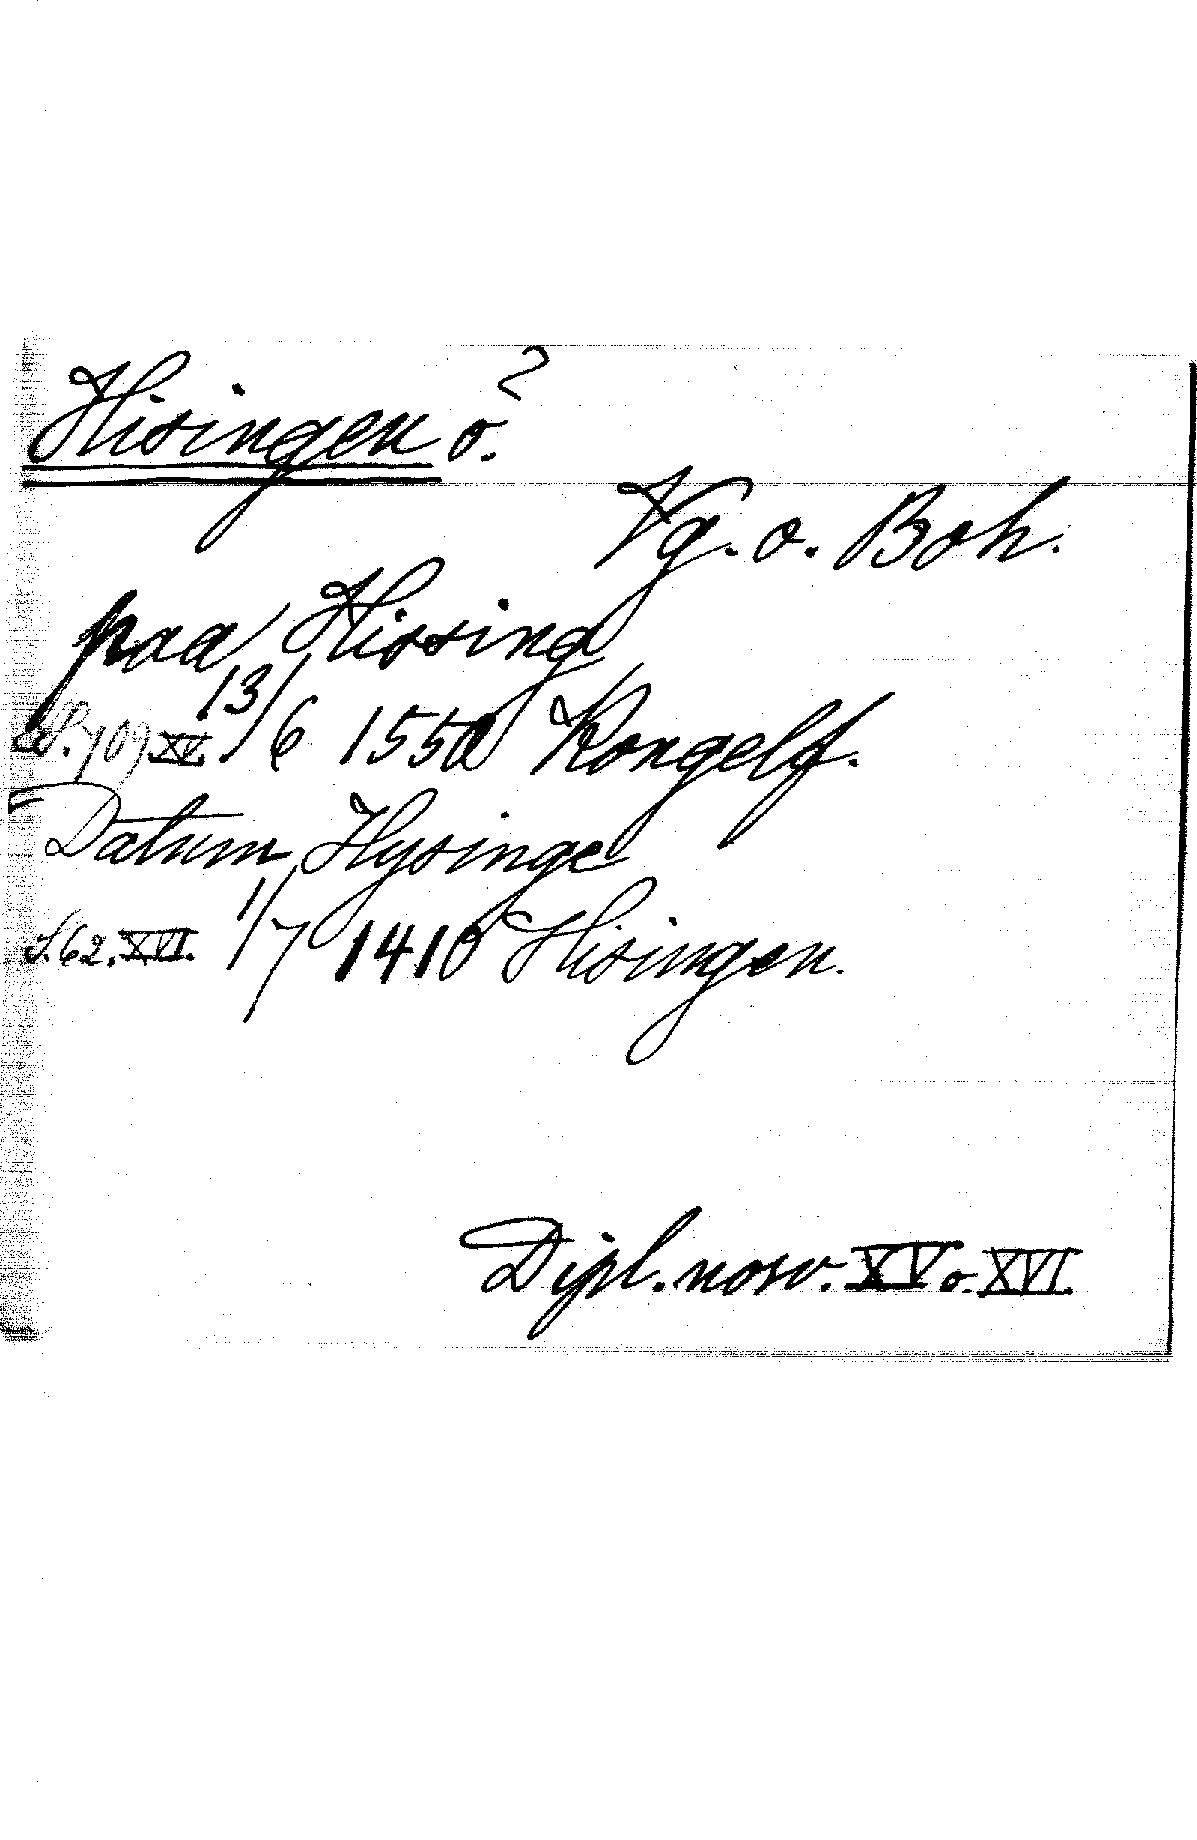 2
Hisingen ö.
Vg. o. Boh.
paa Hissing
S. 709 XV. 13/6 1550 Kongelf.
Datum Hysinge
S. 62. XVI. 1/7 1410 Hisingen.
Dipl. norv. XV o. XVI.